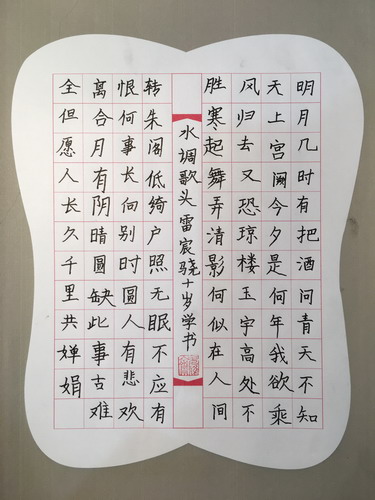 明月几时有把酒问青天不知
天上宫阙今夕是何年我欲乘
风归去又恐琼楼玉宇高处不
胜寒起舞弄清影何似在人间
水调歌头 雷宸骁十岁学书
转朱阁低绮户照无眠不应有
恨何事长向别时圆人有悲欢
离合月有阴晴圆缺此事古难
全但愿人长久千里共婵娟